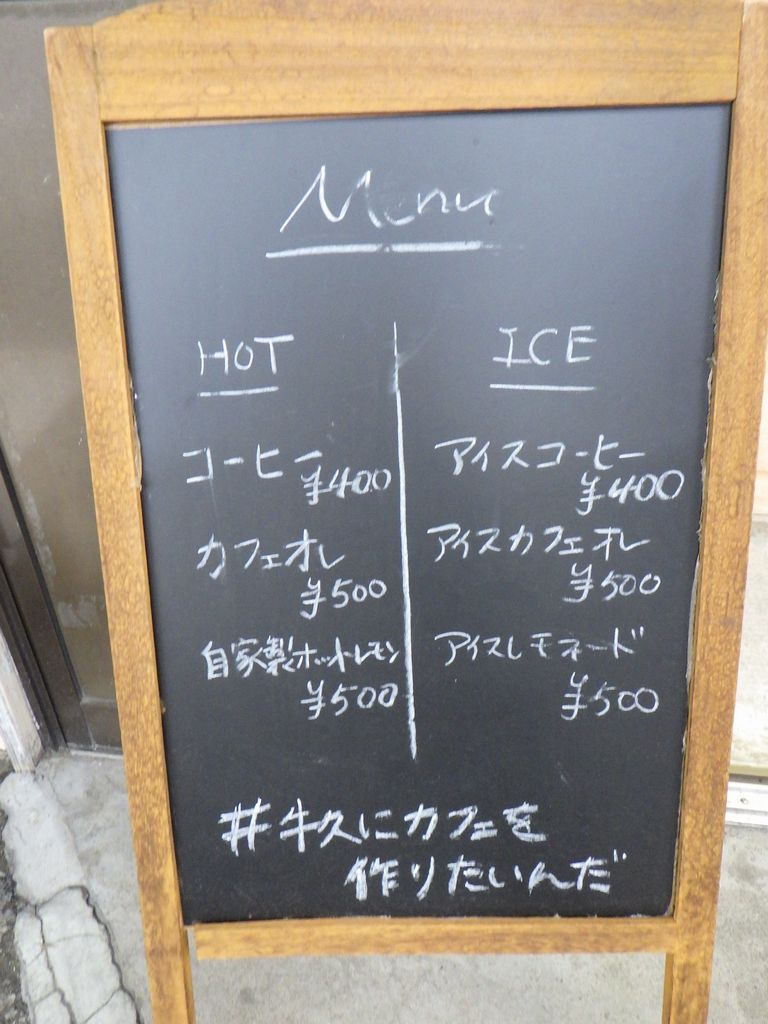 Menu
HOT
コーヒー
¥400
カフェオレ
¥500
自家製ホットレモン
¥500
ICE
アイスコーヒー
¥400
アイスカフェオレ
¥500
アイスレモネード
¥500
#牛久にカフェを
作りたいんだ